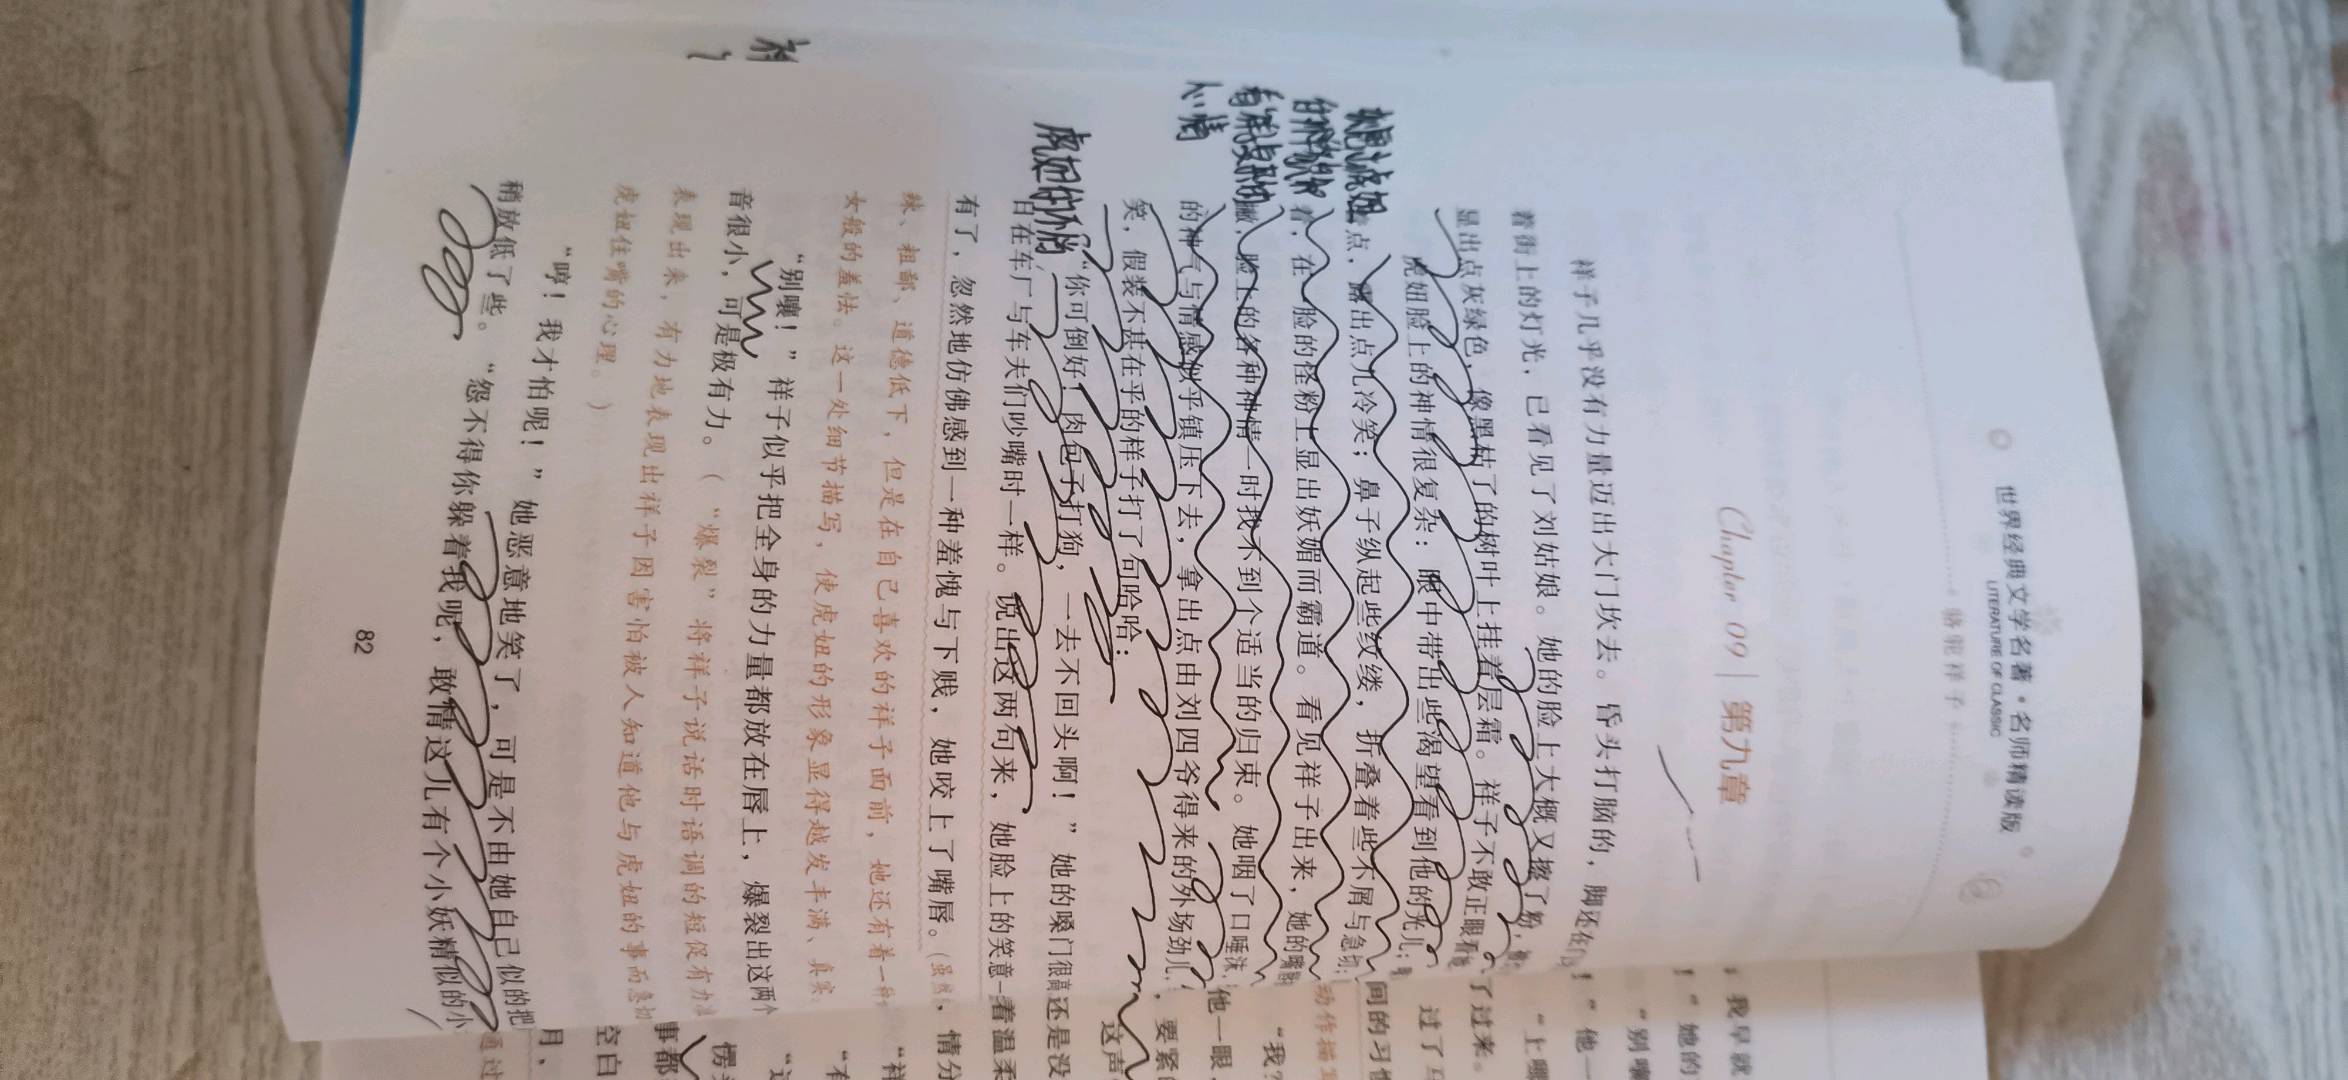 世界经典文学名著·名师精读版
LITERATURE OF CLASSIC
骆驼祥子
Chapter 09 | 第九章
祥子几乎没有力量迈出大门坎去。昏头打脑的，脚还在门
着街上的灯光，已看见了刘姑娘。她的脸上大概又擦了粉，
显出点灰绿色，像黑枯了的树叶上挂着层霜。祥子不敢正眼看
虎妞脸上的神情很复杂：眼中带出些渴望看到他的光儿；
点，露出点儿冷笑；鼻子纵起些纹缕，折叠着些不屑与急切；
着，在一脸的怪粉上显出妖媚而霸道。看见祥子出来，她的嘴
撇，脸上的各种神情一时找不到个适当的归束。她咽了口唾沫，
的神气与情感似乎镇压下去，拿出点由刘四爷得来的外场劲儿，
笑，假装不甚在乎的样子打了句哈哈：
“你可倒好！肉包子打狗，一去不回头啊！”她的嗓门很高
日在车厂与车夫们吵嘴时一样。说出这两句来，她脸上的笑意一
有了，忽然地仿佛感到一种羞愧与下贱，她咬上了嘴唇。（虽然
辣、粗鄙、道德低下，但是在自己喜欢的祥子面前，她还有着一种
女般的羞怯。这一处细节描写，使虎妞的形象显得越发丰满、真实。
“别嚷！”祥子似乎把全身的力量都放在唇上，爆裂出这两个
音很小，可是极有力。（“爆裂”将祥子说话时语调的短促有力
表现出来，有力地表现出祥子因害怕被人知道他与虎妞的事而急切
虎妞住嘴的心理。）
“哼！我才怕呢！”她恶意地笑了，可是不由她自己似的把
稍放低了些。“怨不得你躲着我呢，敢情这儿有个小妖精似的小
82
虎妞的不屑
心情
我早就
！”她的
“别嚷
！”他一
“上哪
了过来。
过了马
间的习惯
动作描写
“我？
他一眼，
要紧
这声
还是没
着温柔
情分
“祥
“有
“这
愣
事都
空白
月，
通过